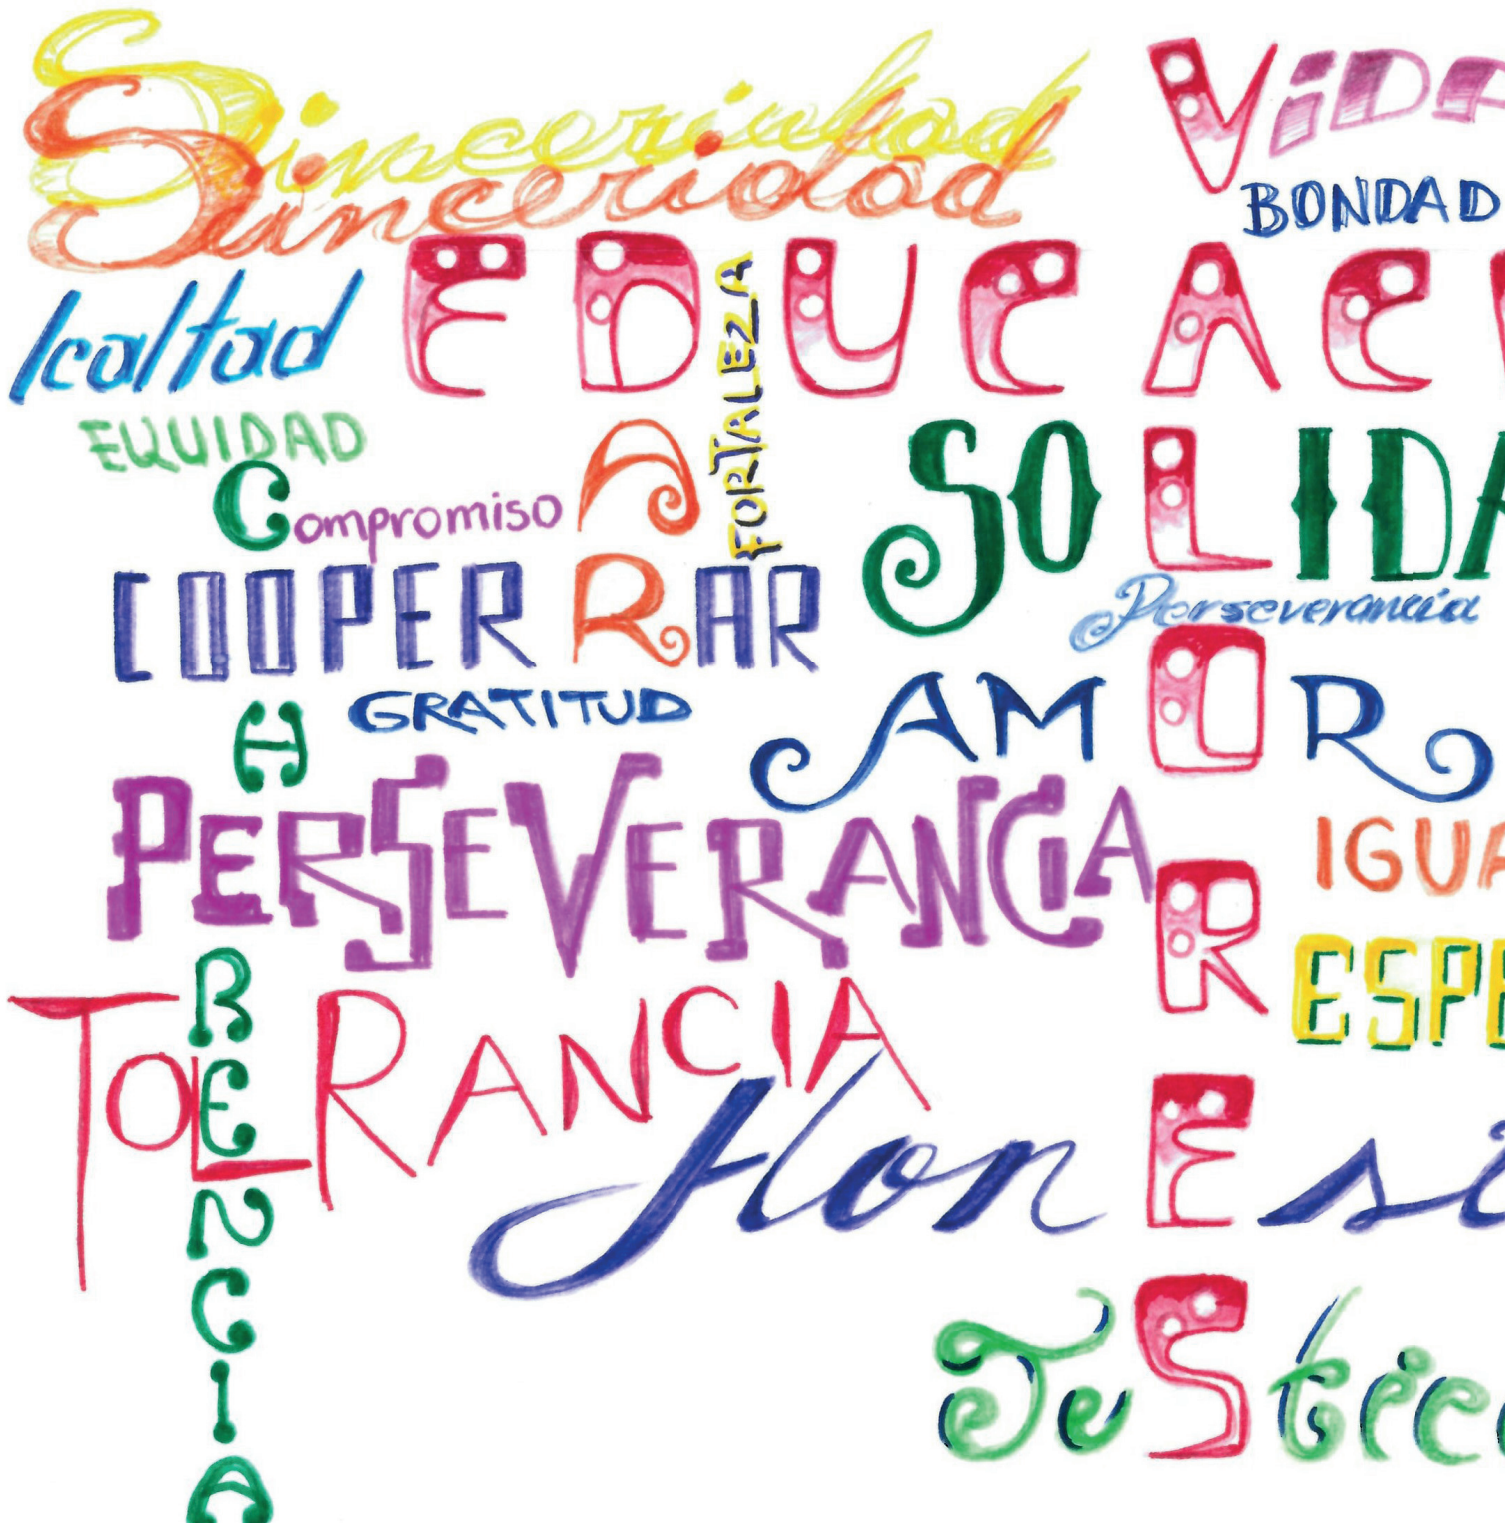 Sinceridad
Sinceridad
ViDA
BONDAD
lealtad
EDUCACI
FORTALEZA
EQUIDAD
Compromiso
DAR
SOLIDA
COOPERRAR
Perseverancia
GRATITUD
AMOR
PERSEVERANCIA
IGUA
ESPE
TOLERANCIA
HonEs
JuStic
COHERENCIA
VALORES